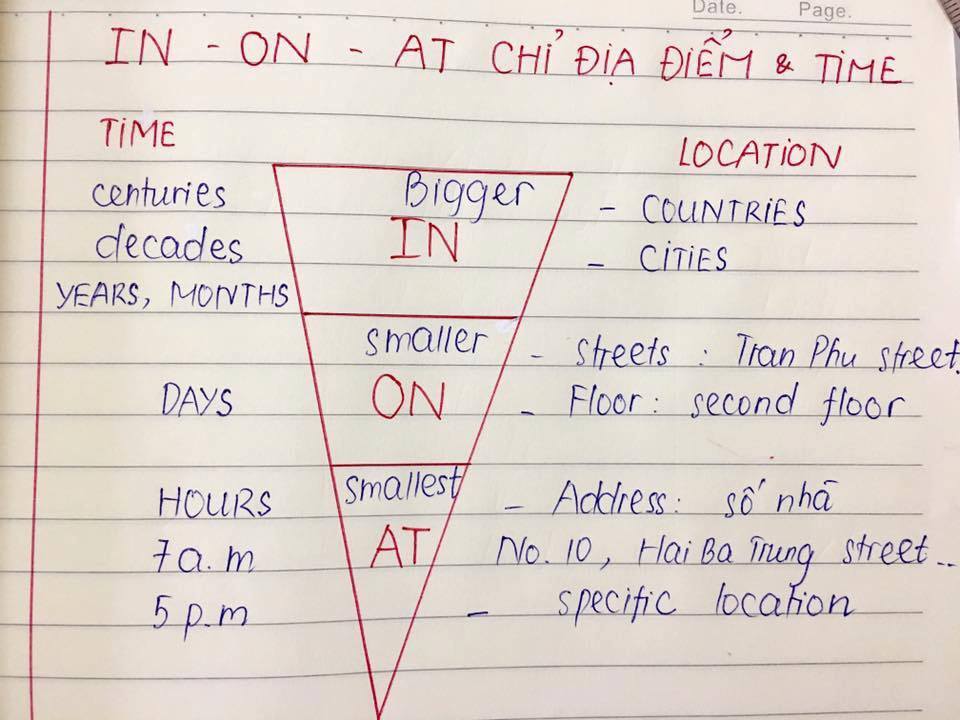 Date. Page.
IN - ON - AT CHỈ ĐỊA ĐIỂM & TIME
TIME
LOCATION
centuries
Bigger
- COUNTRIES
decades
IN
- CITIES
YEARS, MONTHS
smaller
- Streets : Tran Phu street.
DAYS
ON
- Floor : second floor
HOURS
smallest
- Address : số nhà
7 a.m
AT
No. 10, Hai Ba Trung street...
5 p.m
- specific location